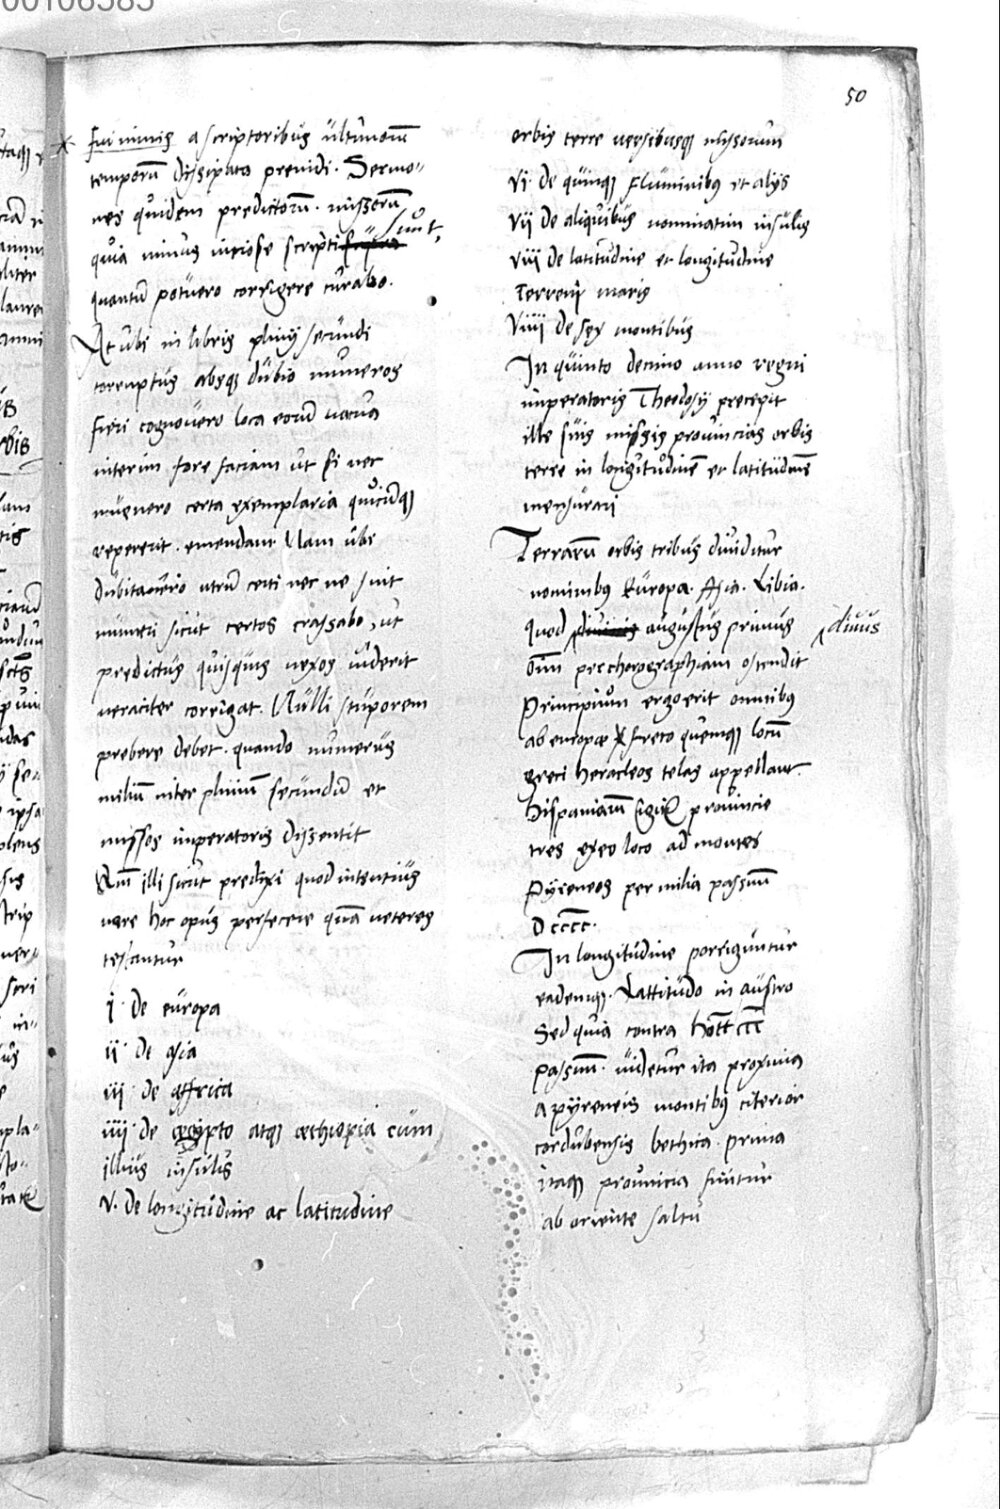 50
fui nimis a scriptoribus ultimorum
temporũ dissipata previdi. Sermo-
nes quidem predictorũ. missorũ
quia nimis viciose scripti sunt,
quantũ potuero corrigere curabo.
At ubi in libris plinij secundi
corruptus absq̃ dubio numeros
fieri cognovero loca eorũ vacua
interim fore faciam ut si nec
invenero certa exemplaria quicũq̃
repererit. emendant Nam ubi
dubitavero utrũ certi nec ne sint
numeri sicut certos crassabo, ut
predictus quisquis veros viderit
veraciter corrigat. Nulli stuporem
prebere debet. quando numerus
miliũ inter pliniũ secundũ et
missos imperatoris dissentit
Qm̃ illi sicut predixi quod intentius
vere hoc opus perfecere quã veteres
testantur
i. De europa
ii. de asia
iii. de affrica
iiii. de egipto atq̃ æthiopia cum
illius insulis
v. De longitudine ac latitudine
orbis terre versibusq̃ missorum
vi. de quinq̃ fluminibꝰ et alijs
vii de aliquibus nominatim insulis
viii de latitudine et longitudine
Terreni maris
viiii de sex montibus
In quinto decimo anno regni
imperatoris Theodosij precepit
ille suis missis provincias orbis
terre in longitudinẽ et latitudinẽ
mensurari
Terrarũ orbis tribus dividitur
nominibꝰ Europa. Asia. Libia.
quod divus augustus primus
om̃ per chorographiam ostendit
Principium ergo erit omnibꝰ
ab europæ freto quemq̃ locũ
greci heracleos telas appellant.
Hispaniarũ sigit̃ provincie
tres ex eo loco ad montes
Pyreneos per milia passuũ
Dcccc.
In longitudine porriguntur
eademq̃. Lattitudo in austro
Sed quia contra ccc
passuũ. videtur ita proxima
a pyreneis montibꝰ citerior
cordubensis bethica. prima
itaq̃ provincia finitur
ab oriente saltu